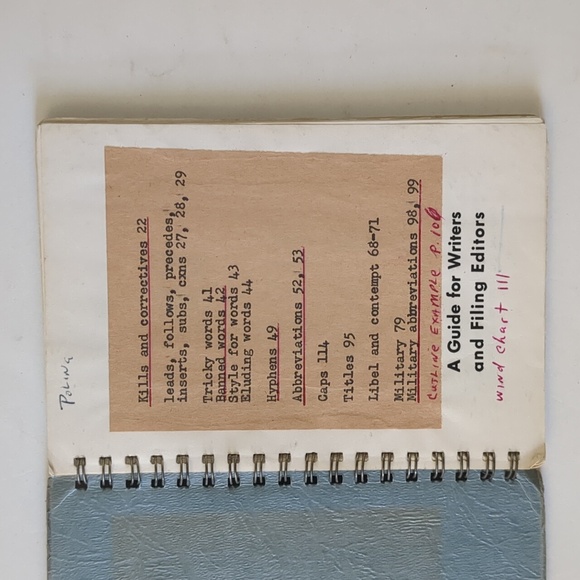 POLING
Kills and correctives 22
leads, follows, precedes,
inserts, subs, cxns 27, 28, 29
Tricky words 41
Banned words 42
Style for words 43
Eluding words 44
Hyphens 49
Abbreviations 52, 53
Caps 114
Titles 95
Libel and contempt 68-71
Military 79
Military abbreviations 98, 99
CUTLINE EXAMPLE P. 100
A Guide for Writers
and Filing Editors
WIND CHART 111